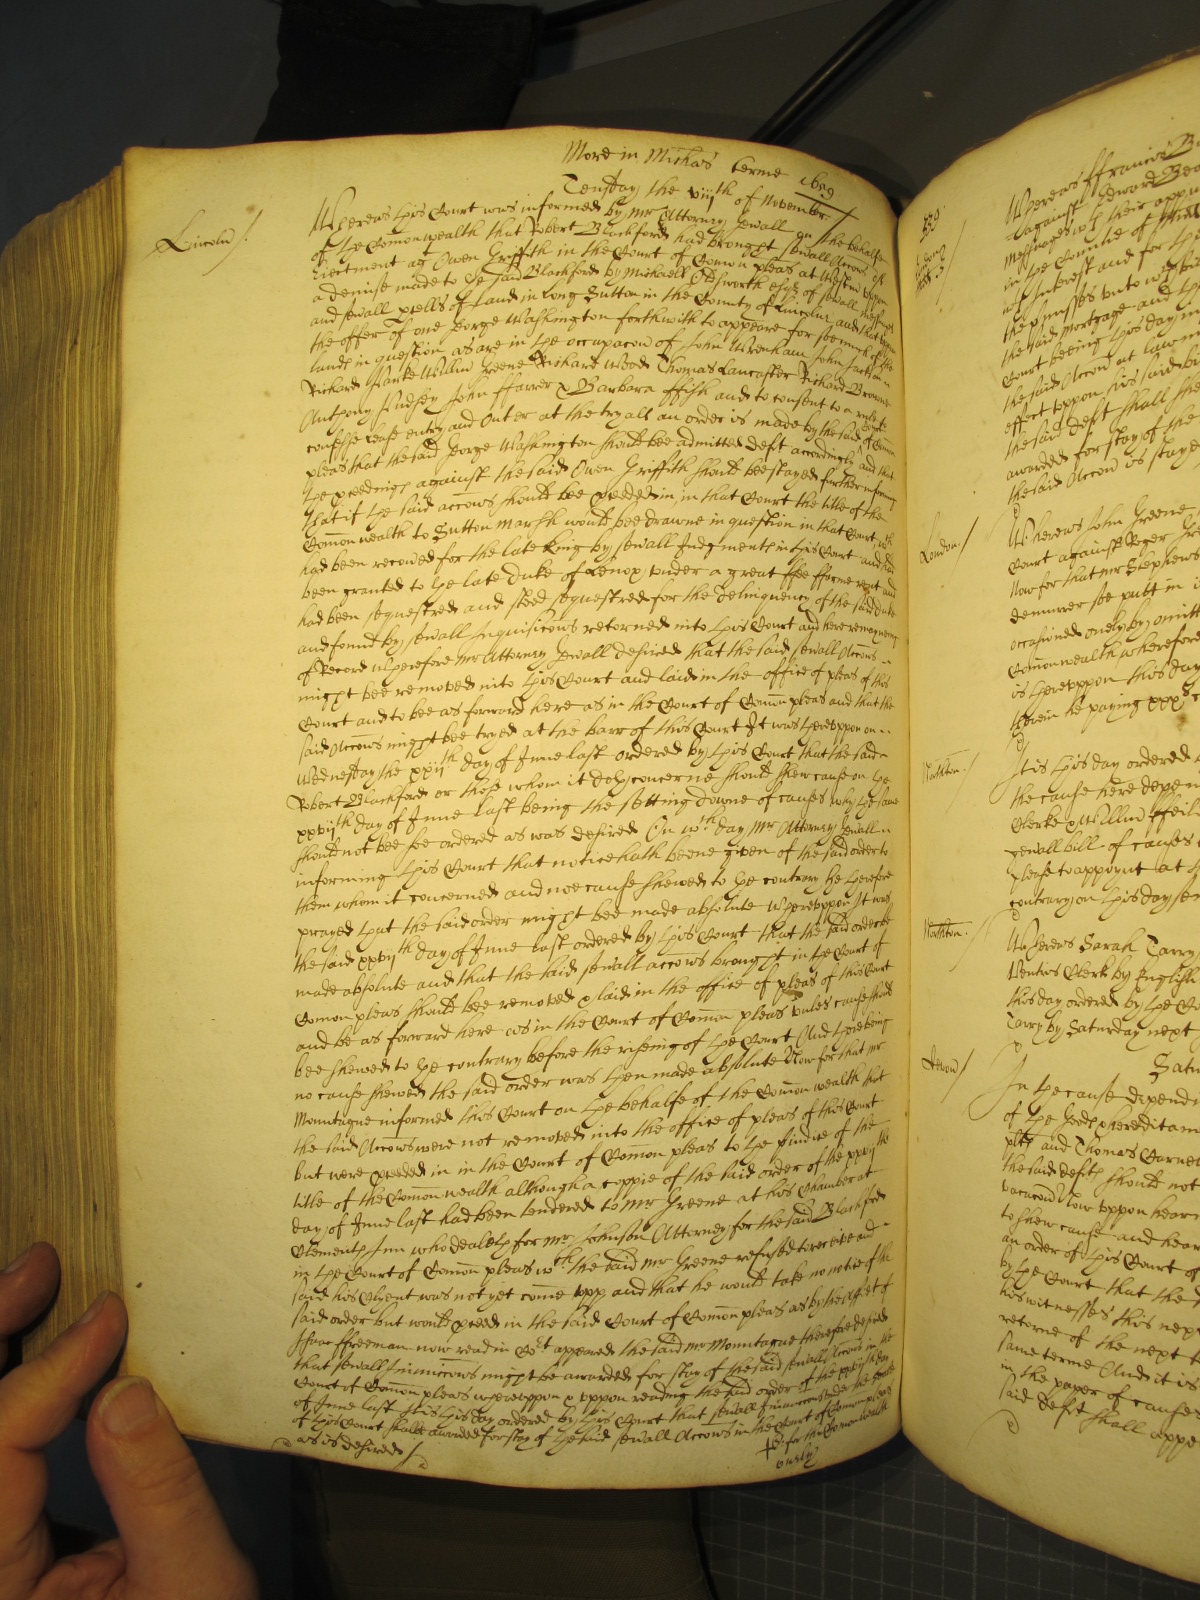 More in Michās terme 1659
Tuesday the viijth of November
Lincoln /.
Whereas this Court was informed by mr Attorney Genrall on the behalfe
of the Comonwealth that Robert Blackford had brought seuall Accons of
Eiectment agt Owen Griffith in the Court of Comon pleas at Westm vppon
a demise made to the said Blackford by Michaell Oldsworth esqr of seuall messuages
and seuall pcells of Land in Long Sutton in the County of Lincolne and that vpon
the offer of one George Washington forthwith to appeare for soe much of the
lands in question as are in the occupacon of John Wrenham John Jackson
Richard Parke Willm Greene Richard Wood Thomas Lancaster Richard Browne
Anthony Pudsey John ffarrer & Barbara ffish and to consent to a rule to
confesse lease entry and Outer at the tryall an order is made by the said Court of Comon
pleas that the said George Washington should bee admitted deft accordingly and that
the pceedings against the said Owen Griffith should bee stayed further informing
that if the said accons should bee pceeded in in that Court the title of the
Comonwealth to Sutton Marsh would bee drawne in question in that Court wch
had been recoued for the late King by seuall Judgments in this Court and had
been granted to the late Duke of Lenox vnder a great ffee fforme rent and
had been sequestred and stood sequestred for the delinquency of the said Duke
and found by seuall Inquisicons returned into this Court and here remayneing
of Record Wherefore mr Attorney Genrall desired that the said seuall Accons
might bee remoued into this Court and laid in the office of pleas of this
Court and to bee as forward here as in the Court of Comon pleas and that the
said Accons might bee tryed at the barr of this Court It was therevppon on
Wednesday the xxijth day of June last ordered by this Court that the said
Robert Blackford or those whom it doth concerne should shew cause on the
xxvijth day of June last being the setting downe of causes why the same
should not bee soe ordered as was desired On wch day Mr Attorney Genrall
informing this Court that notice hath beene given of the said order to
them whom it concerned and noe cause shewed to the contrary he therefore
prayed that the said order might bee made absolute Wherevppon It was
the said xxvijth day of June last ordered by this Court that the said order bee
made absolute and that the said seuall accons brought in the Court of
Comon pleas should bee remoued & laid in the office of pleas of this Court
and be as forward here as in the Court of Comon pleas vnles cause should
bee shewed to the contrary before the riseing of the Court And there being
no cause shewed the said order was then made absolute Now for that mr
Mountague informed this Court on the behalfe of the Comon wealth that
the said Accons were not remoued into the office of pleas of this Court
but were pceeded in in the Court of Comon pleas to the piudice of the
title of the Comon wealth although a coppie of the said order of the xxvijth
day of June last had been tendered to Mr Greene at his Chamber at
Clements Inn who dealeth for mr Johnson Attorney for the said Blackford
in the Court of Comon pleas wch the said mr Greene refused to receive and
said his Clyent was not yet come vpp and that he would take no notice of the
said order but would pceed in the said Court of Comon pleas as by the affct of
Isaac ffreeman now read in Cort appeared the said mr Mountague therefore desired
that seuall Iniunccons might be awarded for stay of the said seuall Accons in the
Court of Comon pleas wherevppon & vppon reading the said order of the xxvijth day
of June last It is this day ordered by this Court that seuall Iniunccons vnder the seale
of this Court shalbe awarded for stay of the said seuall Accons in the Court of Comon pleas
as is desired /
for the Comonwealth
only
339
Whereas ffrancis
against Edward
messuages wth their
in the Countie of
wth Interest and for
the pmisses vnto
the said mortgage and
Court beeing this day
the said Accon at law
effect vppon his said
the said deft shall
awarded for stay of the
the said Accon is stayed
London /
Whereas John Greene
Court against Roger
Now for that mr Stephens
demurrer soe putt in
occasioned onely by
Comonwealth wherefore
is therevppon this day
therein he paying xxxs
Northton /.
It is this day ordered
the cause here
Clerke & Willm
genrall bill of causes
please to appoynt at
contrary on this day
Northton.
Whereas Sarah Tarry
Ventris Clerk by English
this day ordered by the
Tarry by Saturday next
Satur
Devon /
In the cause depend
of the
plts and Thomas
the said defts should not
vacacon Now vppon
to shew cause and
an order of this Court
by the Court that the
his witnesses this next
retorne of the next
same terme And it is
in the paper of causes
said deft shall appe